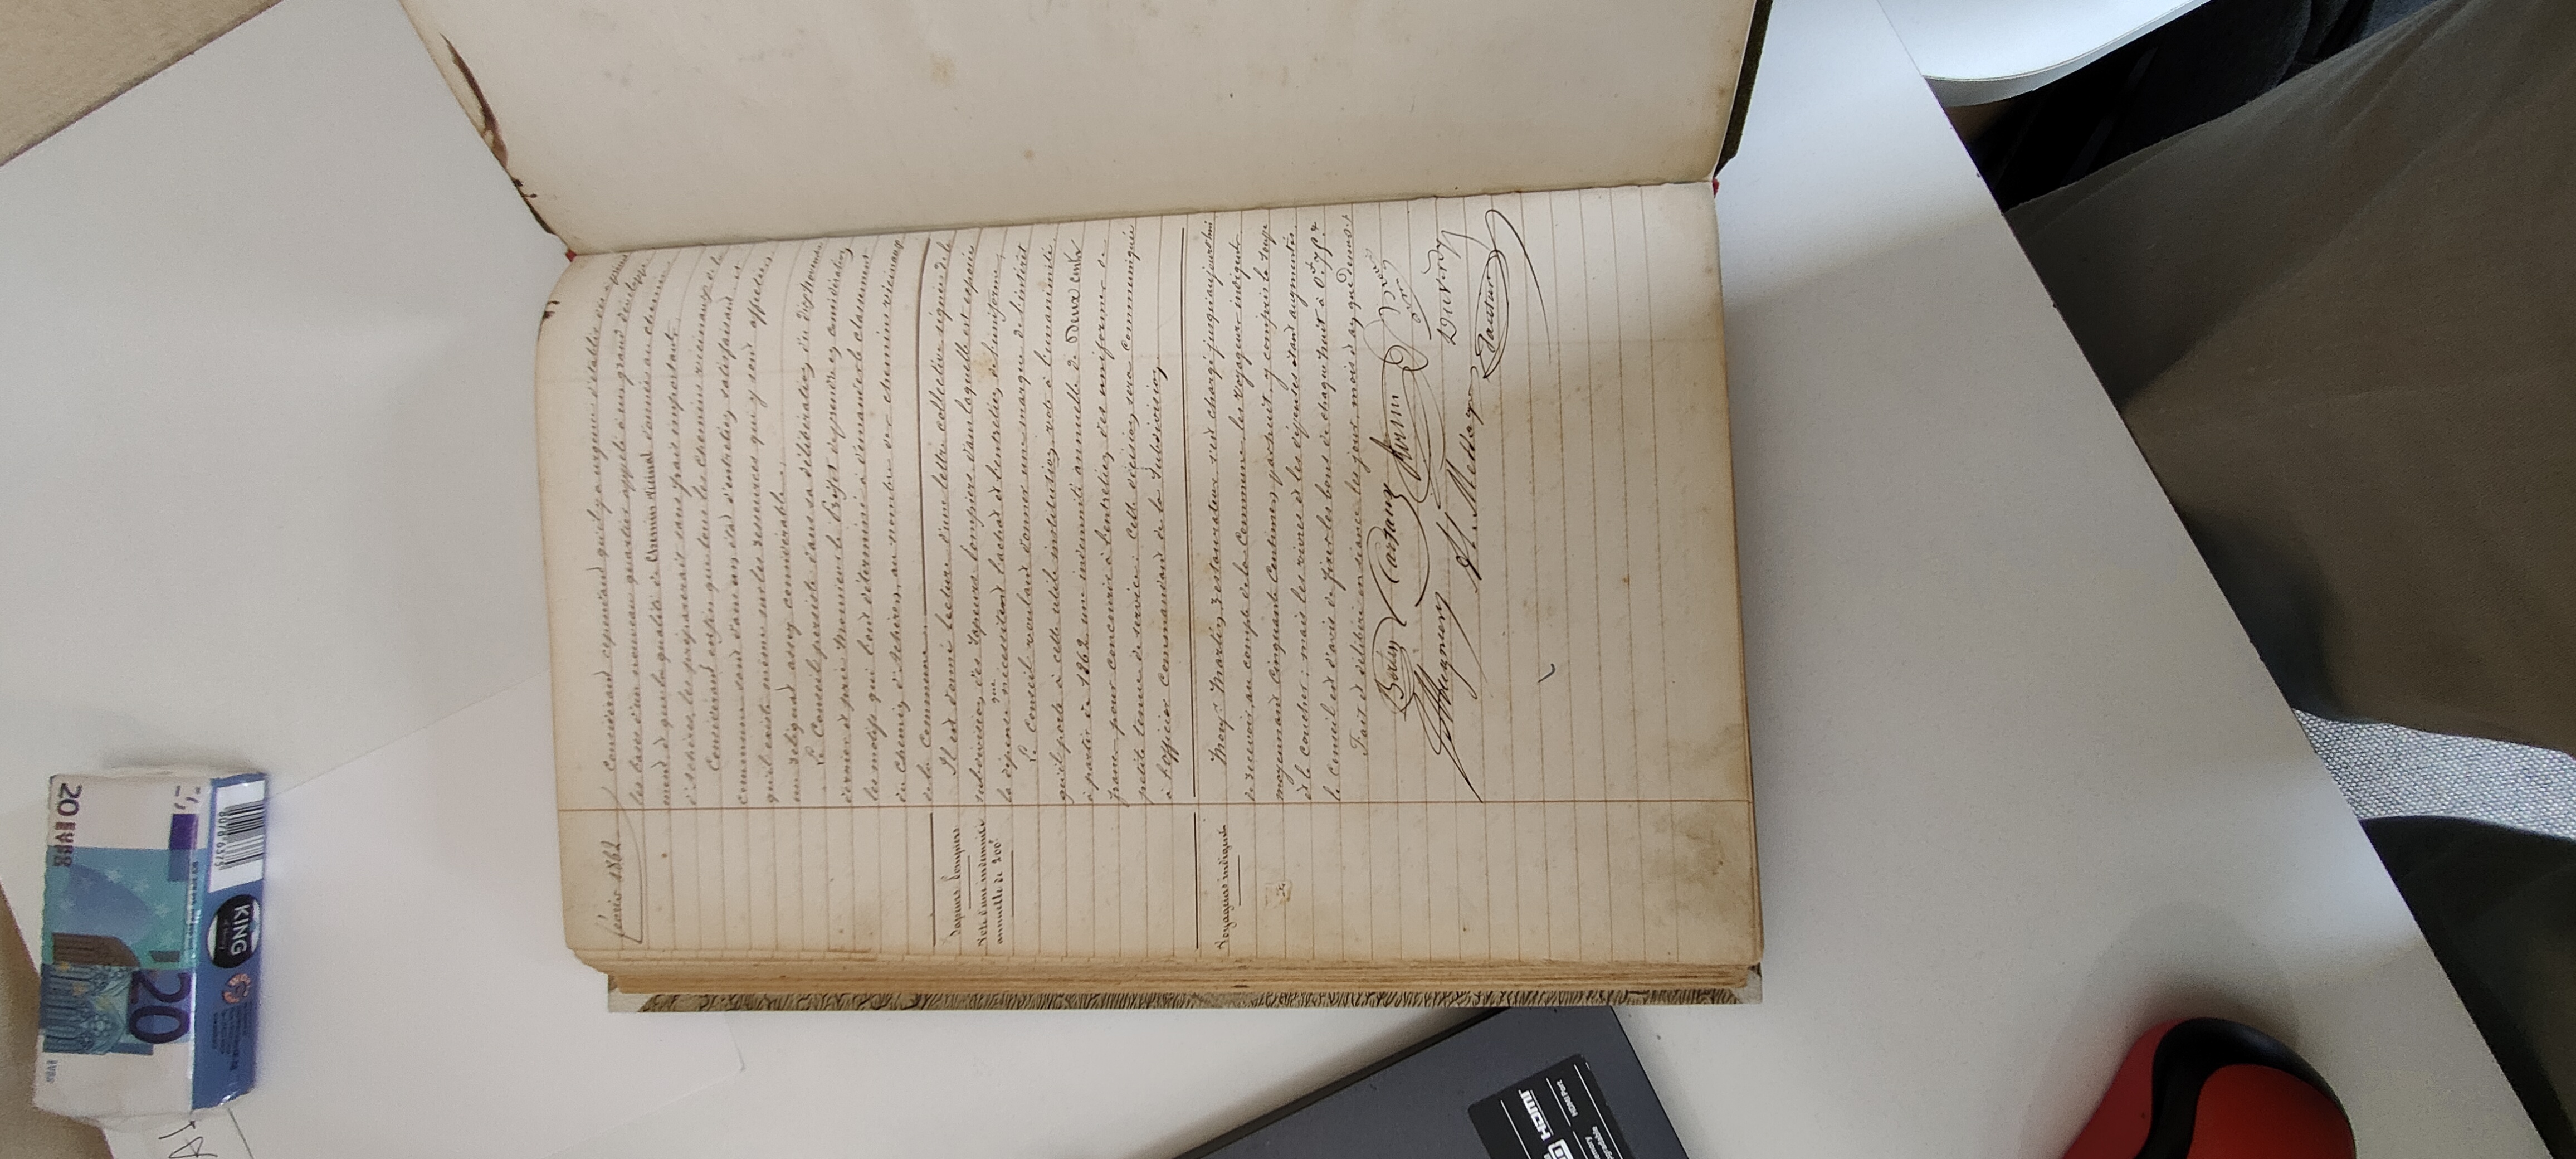 février 1862
Considérant cependant qu'il y a urgence d'établir ou
les bases d'un nouveau quartier appelé à un grand développe
ment et que la qualité de Chemin vicinal donnée au chemin
d'Achères, les préparerait sans frais importants.
Considérant enfin que tous les chemins vicinaux de la
commune sont dans un état d'entretien satisfaisant et
qu'il existe même sur les ressources qui y sont affectées
un reliquat assez considérable.
Le Conseil persiste dans sa délibération du dix novembre
dernier et prie Monsieur le Préfet de prendre en considération
les motifs qui l'ont déterminé à demander le classement
du chemin d'Achères, au nombre des chemins vicinaux
de la Commune.
Sapeurs Pompiers
Vote d'une indemnité
annuelle de 200f
Il est donné lecture d'une lettre collective signée de la
subdivision des Sapeurs pompiers dans laquelle est exposée
la dépense que nécessitent l'achat et l'entretien de l'uniforme.
Le Conseil voulant donner une marque de l'intérêt
qu'il porte à cette utile institution, vote à l'unanimité
à partir de 1862 une indemnité annuelle de Deux cents
francs pour concourir à l'entretien des uniformes de
petite tenue de service. Cette décision sera communiquée
à l'officier Commandant de la Subdivision.
Voyageurs indigents
Monsr Martin, restaurateur s'est chargé jusqu'aujourd'hui
de recevoir au compte de la Commune les voyageurs indigents
moyennant Cinquante Centimes par nuit, y compris la soupe
et le coucher; mais les vivres et les dépenses étant augmentés
le Conseil est d'avis de fixer les bons de chaque nuit à 0f 75c
Fait et délibéré en séance les jour, mois et an que dessus.
20 EURO
20
KING
HDMI
HDMI Port